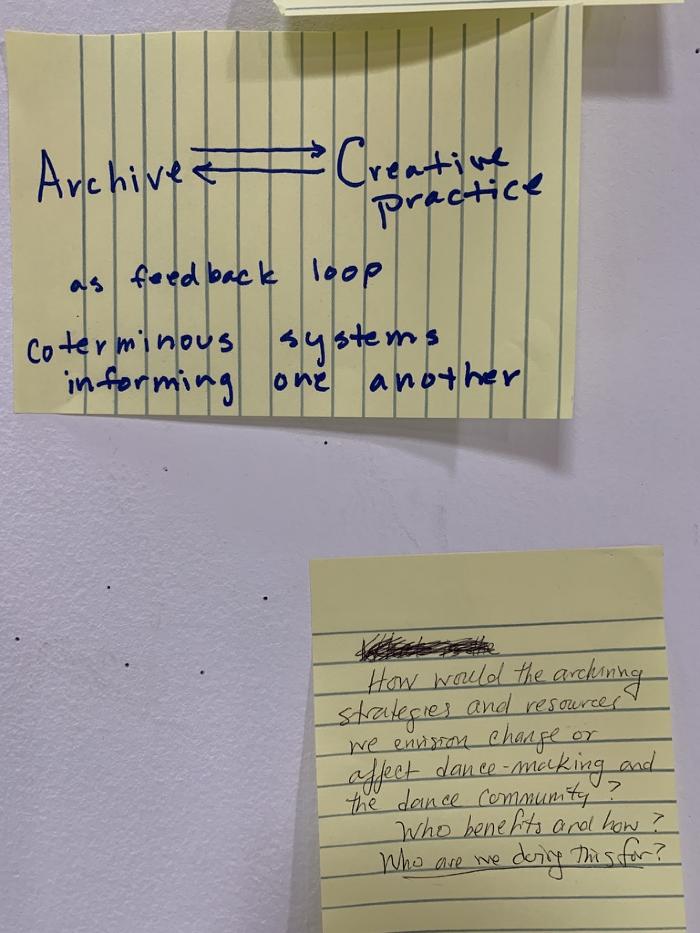 Archive ⇄ Creative
practice
as feedback loop
coterminous systems
informing one another
How would the archiving
strategies and resources
we envision change or
affect dance-making and
the dance community?
Who benefits and how?
Who are we doing this for?